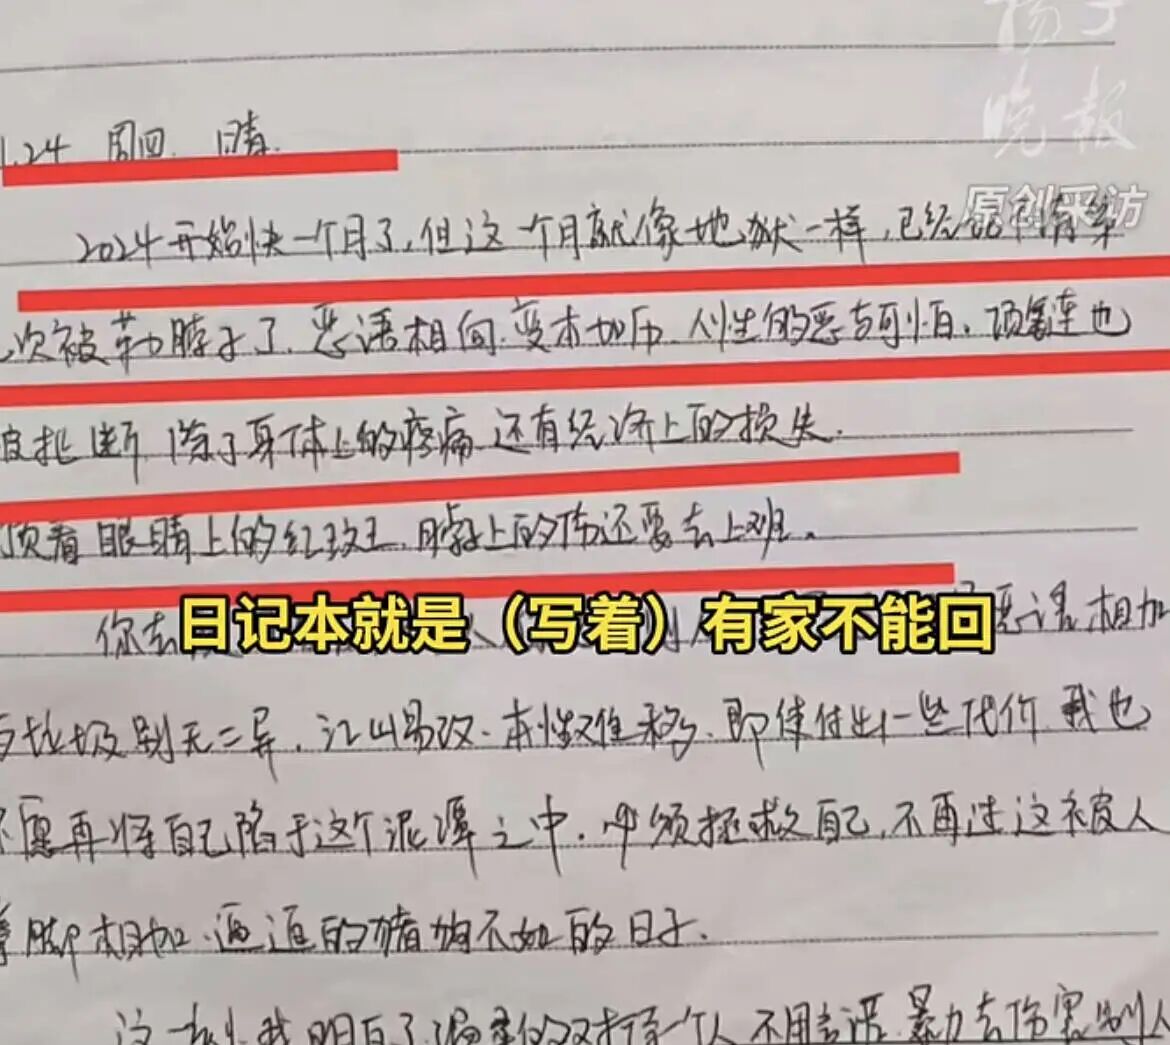 扬子
晚报
原创采访
1.24 周四. 晴.
2024开始快一个月了,但这一个月就像地狱一样,已经记不清第
次被勒脖子了.恶语相向.变本加厉.人性的恶与可怕.项链连也
被扯断 除了身体上的疼痛 还有经济上的损失.
顶着眼睛上的红斑,脖子上的伤还要去上班。
你去
日记本就是(写着)有家不能回
恶语相加
与垃圾别无二异,江山易改.本性难移.即使付出一些代价 我也
不愿再将自己陷于这个泥潭之中.必须拯救自己,不再过这被人
拳脚相加.逼逼的猪狗不如的日子.
我明白了,温柔的对待一个人 不用言语.暴力去伤害别人